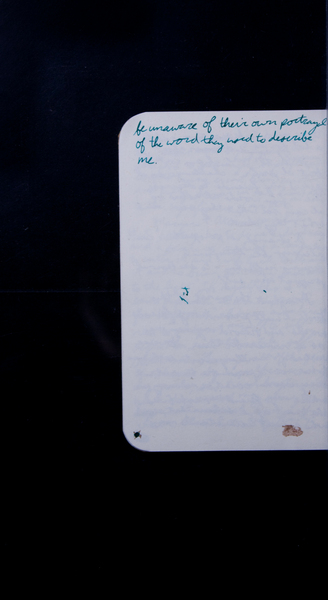 be unaware of their own portrayl
of the word they used to describe
me.